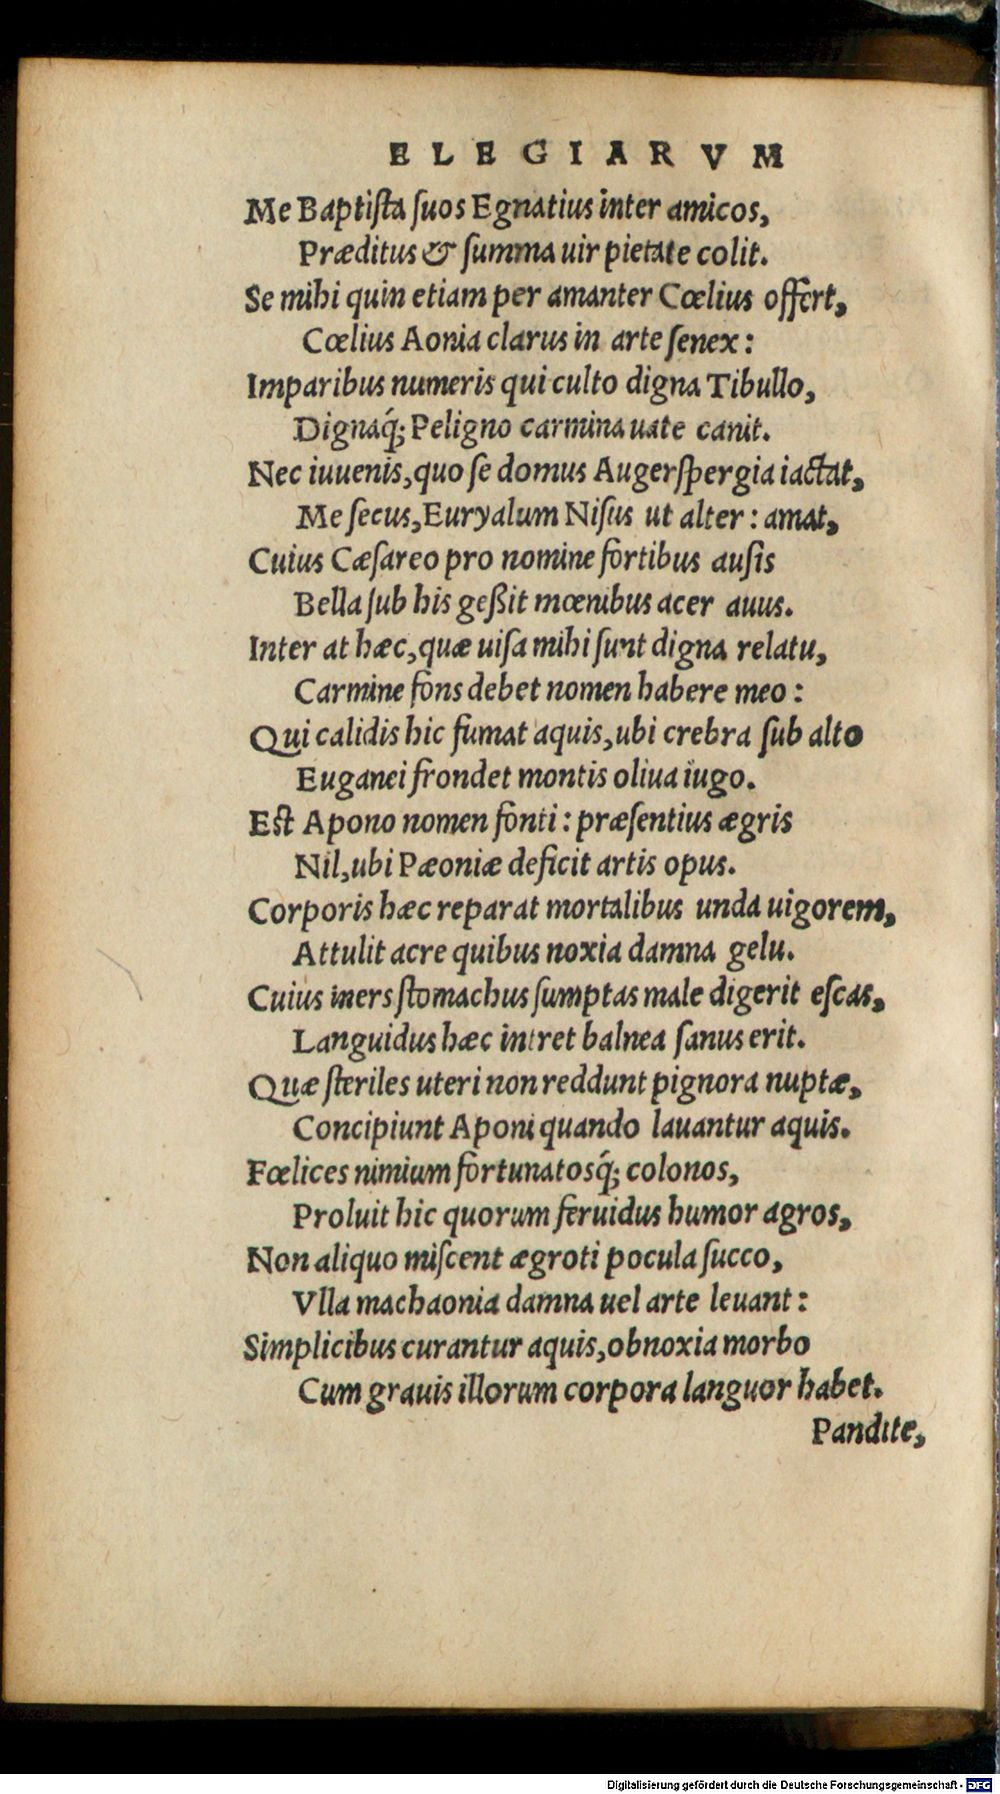 ELEGIARVM
Me Baptiſta ſuos Egnatius inter amicos,
Præditus & ſumma uir pietate colit.
Se mihi quin etiam per amanter Cœlius offert,
Cœlius Aonia clarus in arte ſenex:
Imparibus numeris qui culto digna Tibullo,
Dignaq́; Peligno carmina uate canit.
Nec iuuenis, quo ſe domus Augerſpergia iactat,
Me ſecus, Euryalum Niſus ut alter: amat,
Cuius Cæſareo pro nomine fortibus auſis
Bella ſub his geßit mœnibus acer auus.
Inter at hæc, quæ uiſa mihi ſunt digna relatu,
Carmine fons debet nomen habere meo:
Qui calidis hic fumat aquis, ubi crebra ſub alto
Euganei frondet montis oliua iugo.
Eſt Apono nomen fonti: præſentius ægris
Nil, ubi Pæoniæ deficit artis opus.
Corporis hæc reparat mortalibus unda uigorem,
Attulit acre quibus noxia damna gelu.
Cuius iners ſtomachus ſumptas male digerit eſcas,
Languidus hæc intret balnea ſanus erit.
Quæ ſteriles uteri non reddunt pignora nuptæ,
Concipiunt Aponi quando lauantur aquis.
Fœlices nimium fortunatosq́; colonos,
Proluit hic quorum feruidus humor agros,
Non aliquo miſcent ægroti pocula ſucco,
Vlla machaonia damna uel arte leuant:
Simplicibus curantur aquis, obnoxia morbo
Cum grauis illorum corpora languor habet.
Pandite,
Digitalisierung gefördert durch die Deutsche Forschungsgemeinschaft - DFG